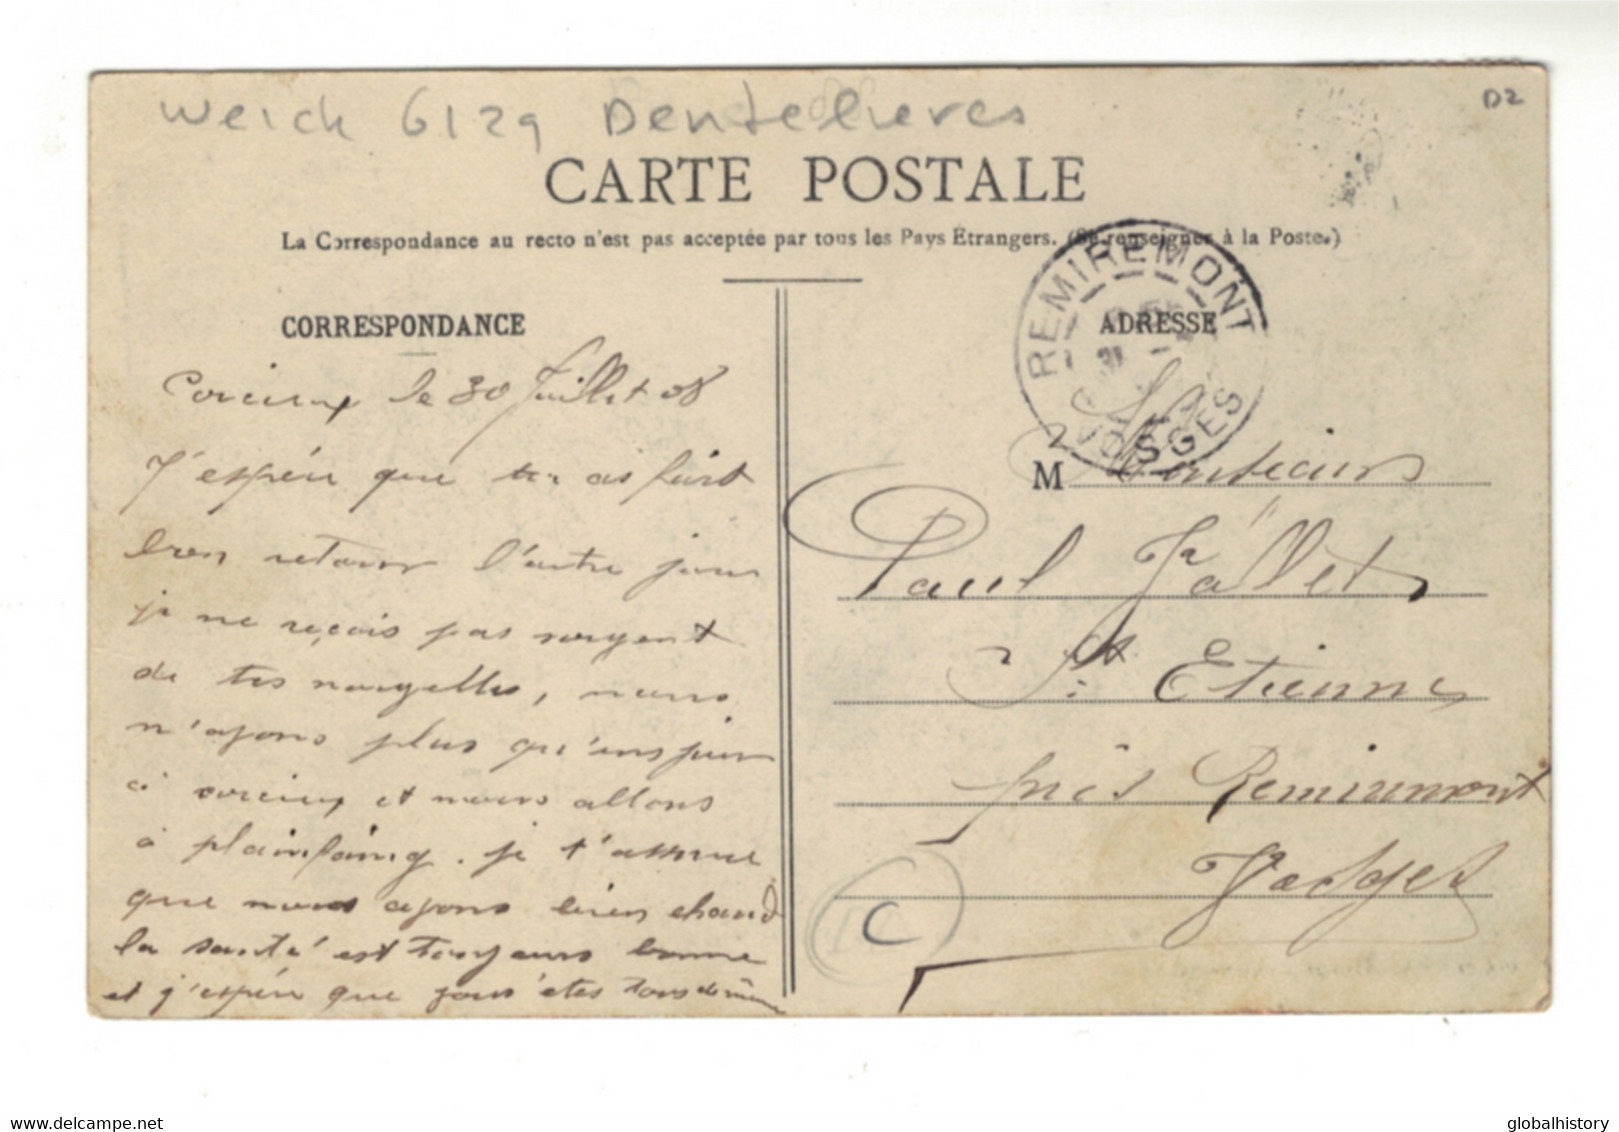 Weick 6129 Dentelieres
D2
CARTE POSTALE
La Correspondance au recto n'est pas acceptée par tous les Pays Etrangers. (Se renseigner à la Poste.)
CORRESPONDANCE
Corcieux le 30 Juillet 08
J'espére que tu as fait
bien retour l'autre jour
je ne reçois pas souvent
de tes nouvelles, nous
n'avons plus qu'un jour
à corcieux et nous allons
à plainfaing. je t'assure
que nous avons bien chaud
la santé est toujours bonne
et j'espére que vous êtes tous de même
REMIREMONT
VOSGES
ADRESSE
M Monsieur
Paul Vallet
St Etienne
près Remiremont
Vosges
C
www.delcampe.net
globalhistory